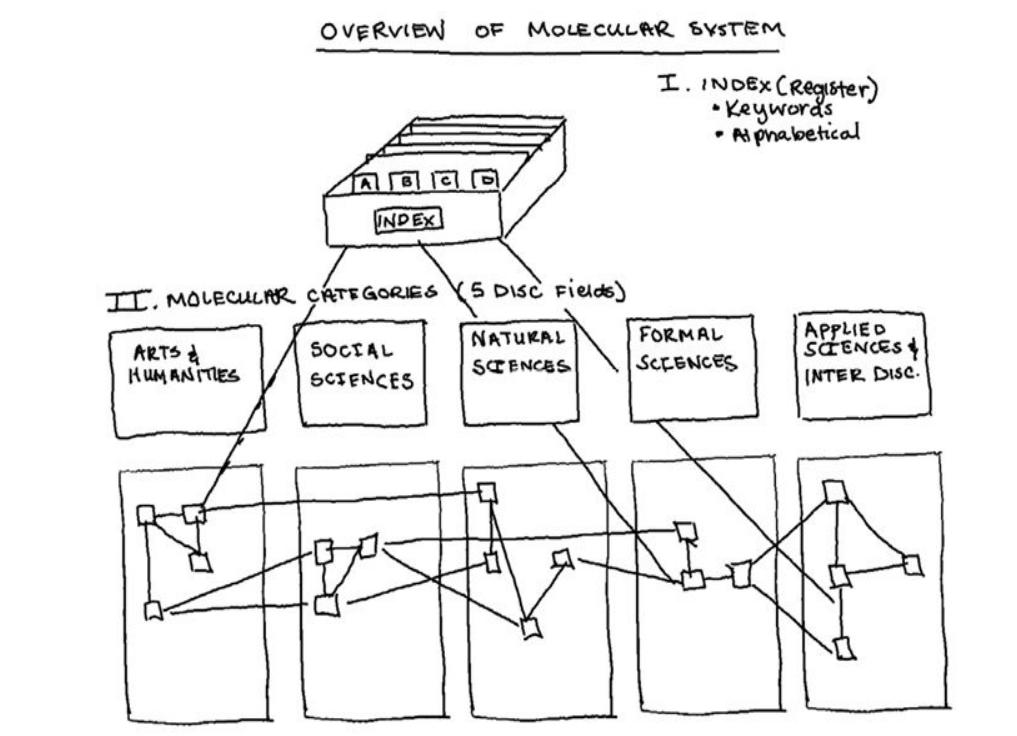 OVERVIEW OF MOLECULAR SYSTEM
I. INDEX (Register)
• Keywords
• Alphabetical
A B C D
INDEX
II. MOLECULAR CATEGORIES (5 DISC Fields)
ARTS &
HUMANITIES
SOCIAL
SCIENCES
NATURAL
SCIENCES
FORMAL
SCIENCES
APPLIED
SCIENCES &
INTER DISC.